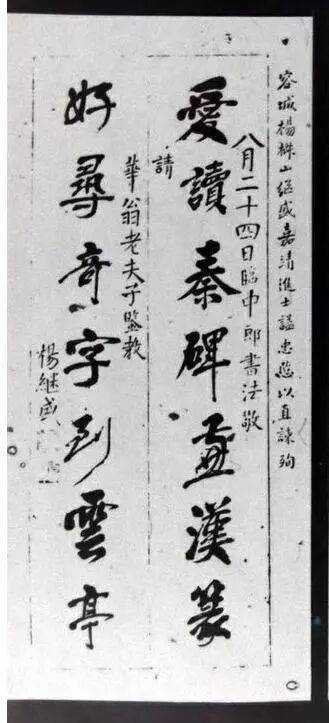 容城楊椒山繼盛嘉靖進士諡忠愍以直諫殉
愛讀秦碑并漢篆
八月二十四日臨中郎書法敬
請
華翁老夫子監教
好尋奇字到雲亭
楊継盛